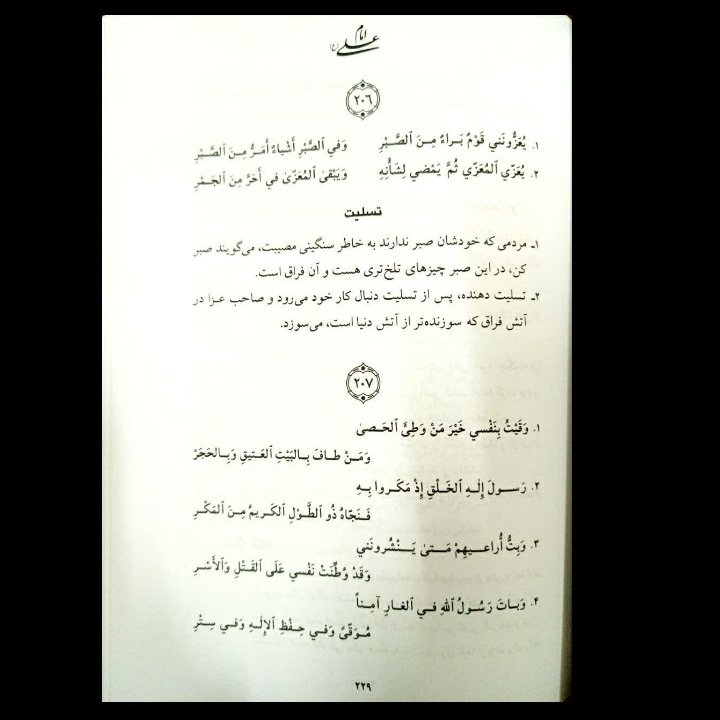 امام علی (ع)
۲۰۶
۱. يُعَزُّونَني قَوْمٌ بَراءٌ مِنَ الصَّبْرِ وَفي الصَّبْرِ أَشْياءٌ أَمَرُّ مِنَ الصَّبْرِ
۲. يُعَزّي المُعَزّي ثُمَّ يَمْضي لِشَأْنِهِ وَيَبْقىٰ المُعَزّىٰ في أَحَرَّ مِنَ الجَمْرِ
تسلیت
۱ـ مردمی که خودشان صبر ندارند به خاطر سنگینی مصیبت، می‌گویند صبر
کن، در این صبر چیزهای تلخ‌تری هست و آن فراق است.
۲ـ تسلیت دهنده، پس از تسلیت دنبال کار خود می‌رود و صاحب عزا در
آتش فراق که سوزنده‌تر از آتش دنیا است، می‌سوزد.
۲۰۷
۱. وَقَيْتُ بِنَفْسي خَيْرَ مَنْ وَطِئَ الحَصىٰ
وَمَنْ طافَ بِالبَيْتِ العَتيقِ وَبِالحَجَرْ
۲. رَسولَ إِلهِ الخَلْقِ إِذْ مَكَروا بِهِ
فَنَجّاهُ ذُو الطَّوْلِ الكَريمُ مِنَ المَكْرِ
۳. وَبِتُّ أُراعيهِمْ مَتىٰ يَنْشُرونَني
وَقَدْ وُطِّنَتْ نَفْسي عَلَى القَتْلِ وَالأَسْرِ
۴. وَباتَ رَسُولُ اللهِ في الغارِ آمِناً
مُوَقّىً وَفي حِفْظِ الإِلهِ وَفي سِتْرِ
۲۲۹